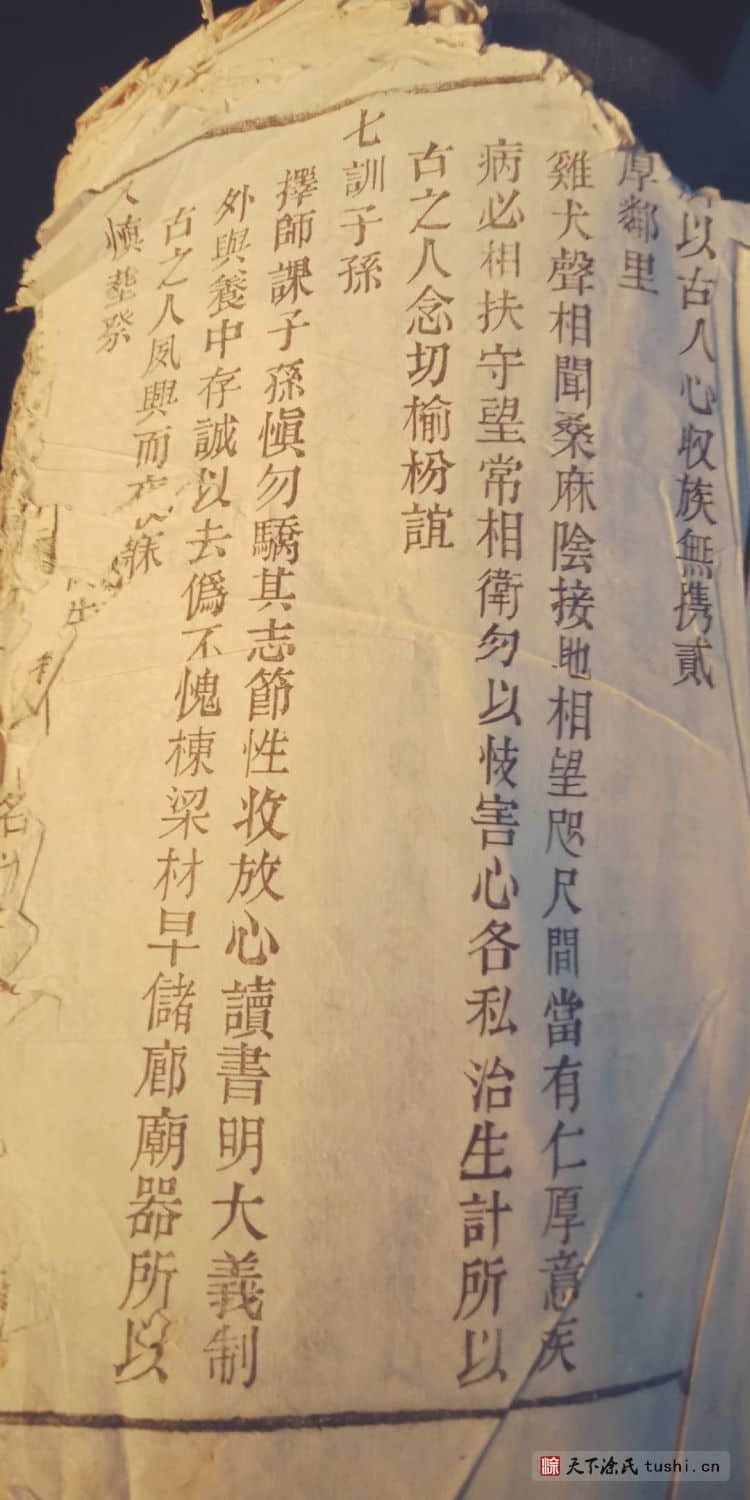 以古人心收族無携貳
厚鄰里
雞犬聲相聞桑麻陰接地相望咫尺間當有仁厚意疾
病必相扶守望常相衛勿以忮害心各私治生計所以
古之人念切榆枌誼
七訓子孫
擇師課子孫慎勿驕其志節性收放心讀書明大義制
外與養中存誠以去僞不愧棟梁材早儲廊廟器所以
古之人夙興而夜寐
慎塟祭
名
天下涂氏 tushi.cn